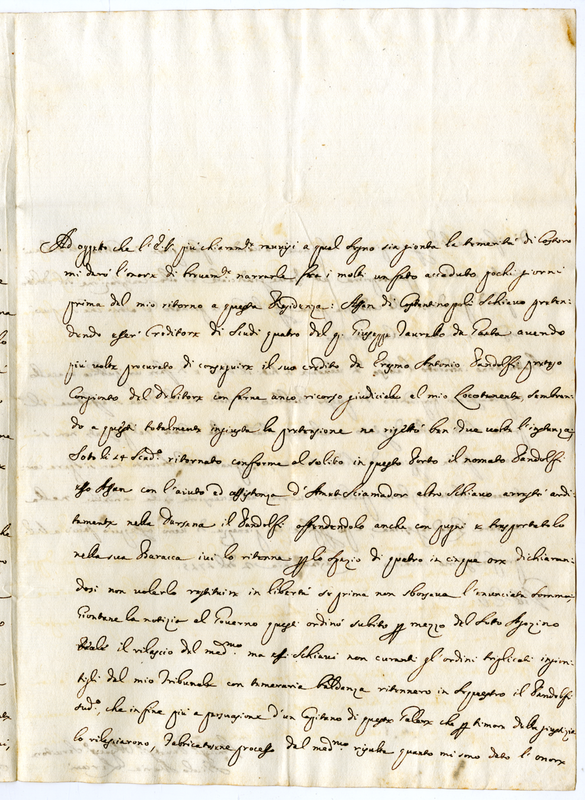 Ad oggetto che l'E.V. più chiaram.te ravvisi a qual segno sia gionta la temerità di costoro
mi darò l'onore di brevem.te narrarle fra i molti un fatto accaduto pochi giorni
prima del mio ritorno a questa Residenza: Assan di Costantinopoli Schiavo preten-
dendo esser Creditore di Scudi quatro del q. Giuseppe Taurello da Gaeta avendo
più volte procurato di conseguire il suo credito da Erasmo Antonio Pandolfi preteso
Congionto del Debitore con farne anco ricorso giudiciale al mio Locotenente sembran-
do a questi totalmente ingiusta la pretenzione ne rigettò ben due volte l'instanza;
Sotto li 24 Scad.o ritornato conforme al solito in questo Porto il nomato Pandolfi
esso Assan con l'aiuto ed assistenza d'Amet altro Schiavo arrestò ardi-
tamente nella Darsena il Pandolfi offendendolo anche con pugni e trasportatolo
nella sua Baracca ivi lo ritenne per lo spazio di quatro in cinque ore dichiaran-
dosi non volerlo restituire in libertà se prima non sborsava l'enunciata somma;
Giontane la notizia al Governo questi ordinò subito per mezzo del Sotto Agozino
Reale il rilascio del med.mo ma essi Schiavi non curanti gl'ordini triplicati ingion-
tigli dal mio Tribunale con temeraria baldanza ritennero in sequestro il Pandolfi
sud.o, che in fine più a persuasione d'un Capitano di queste Galere che per timore della giustizia
lo rilasciarono, Fabricatosene processo dal med.mo rileva quanto mi sono dato l'onore